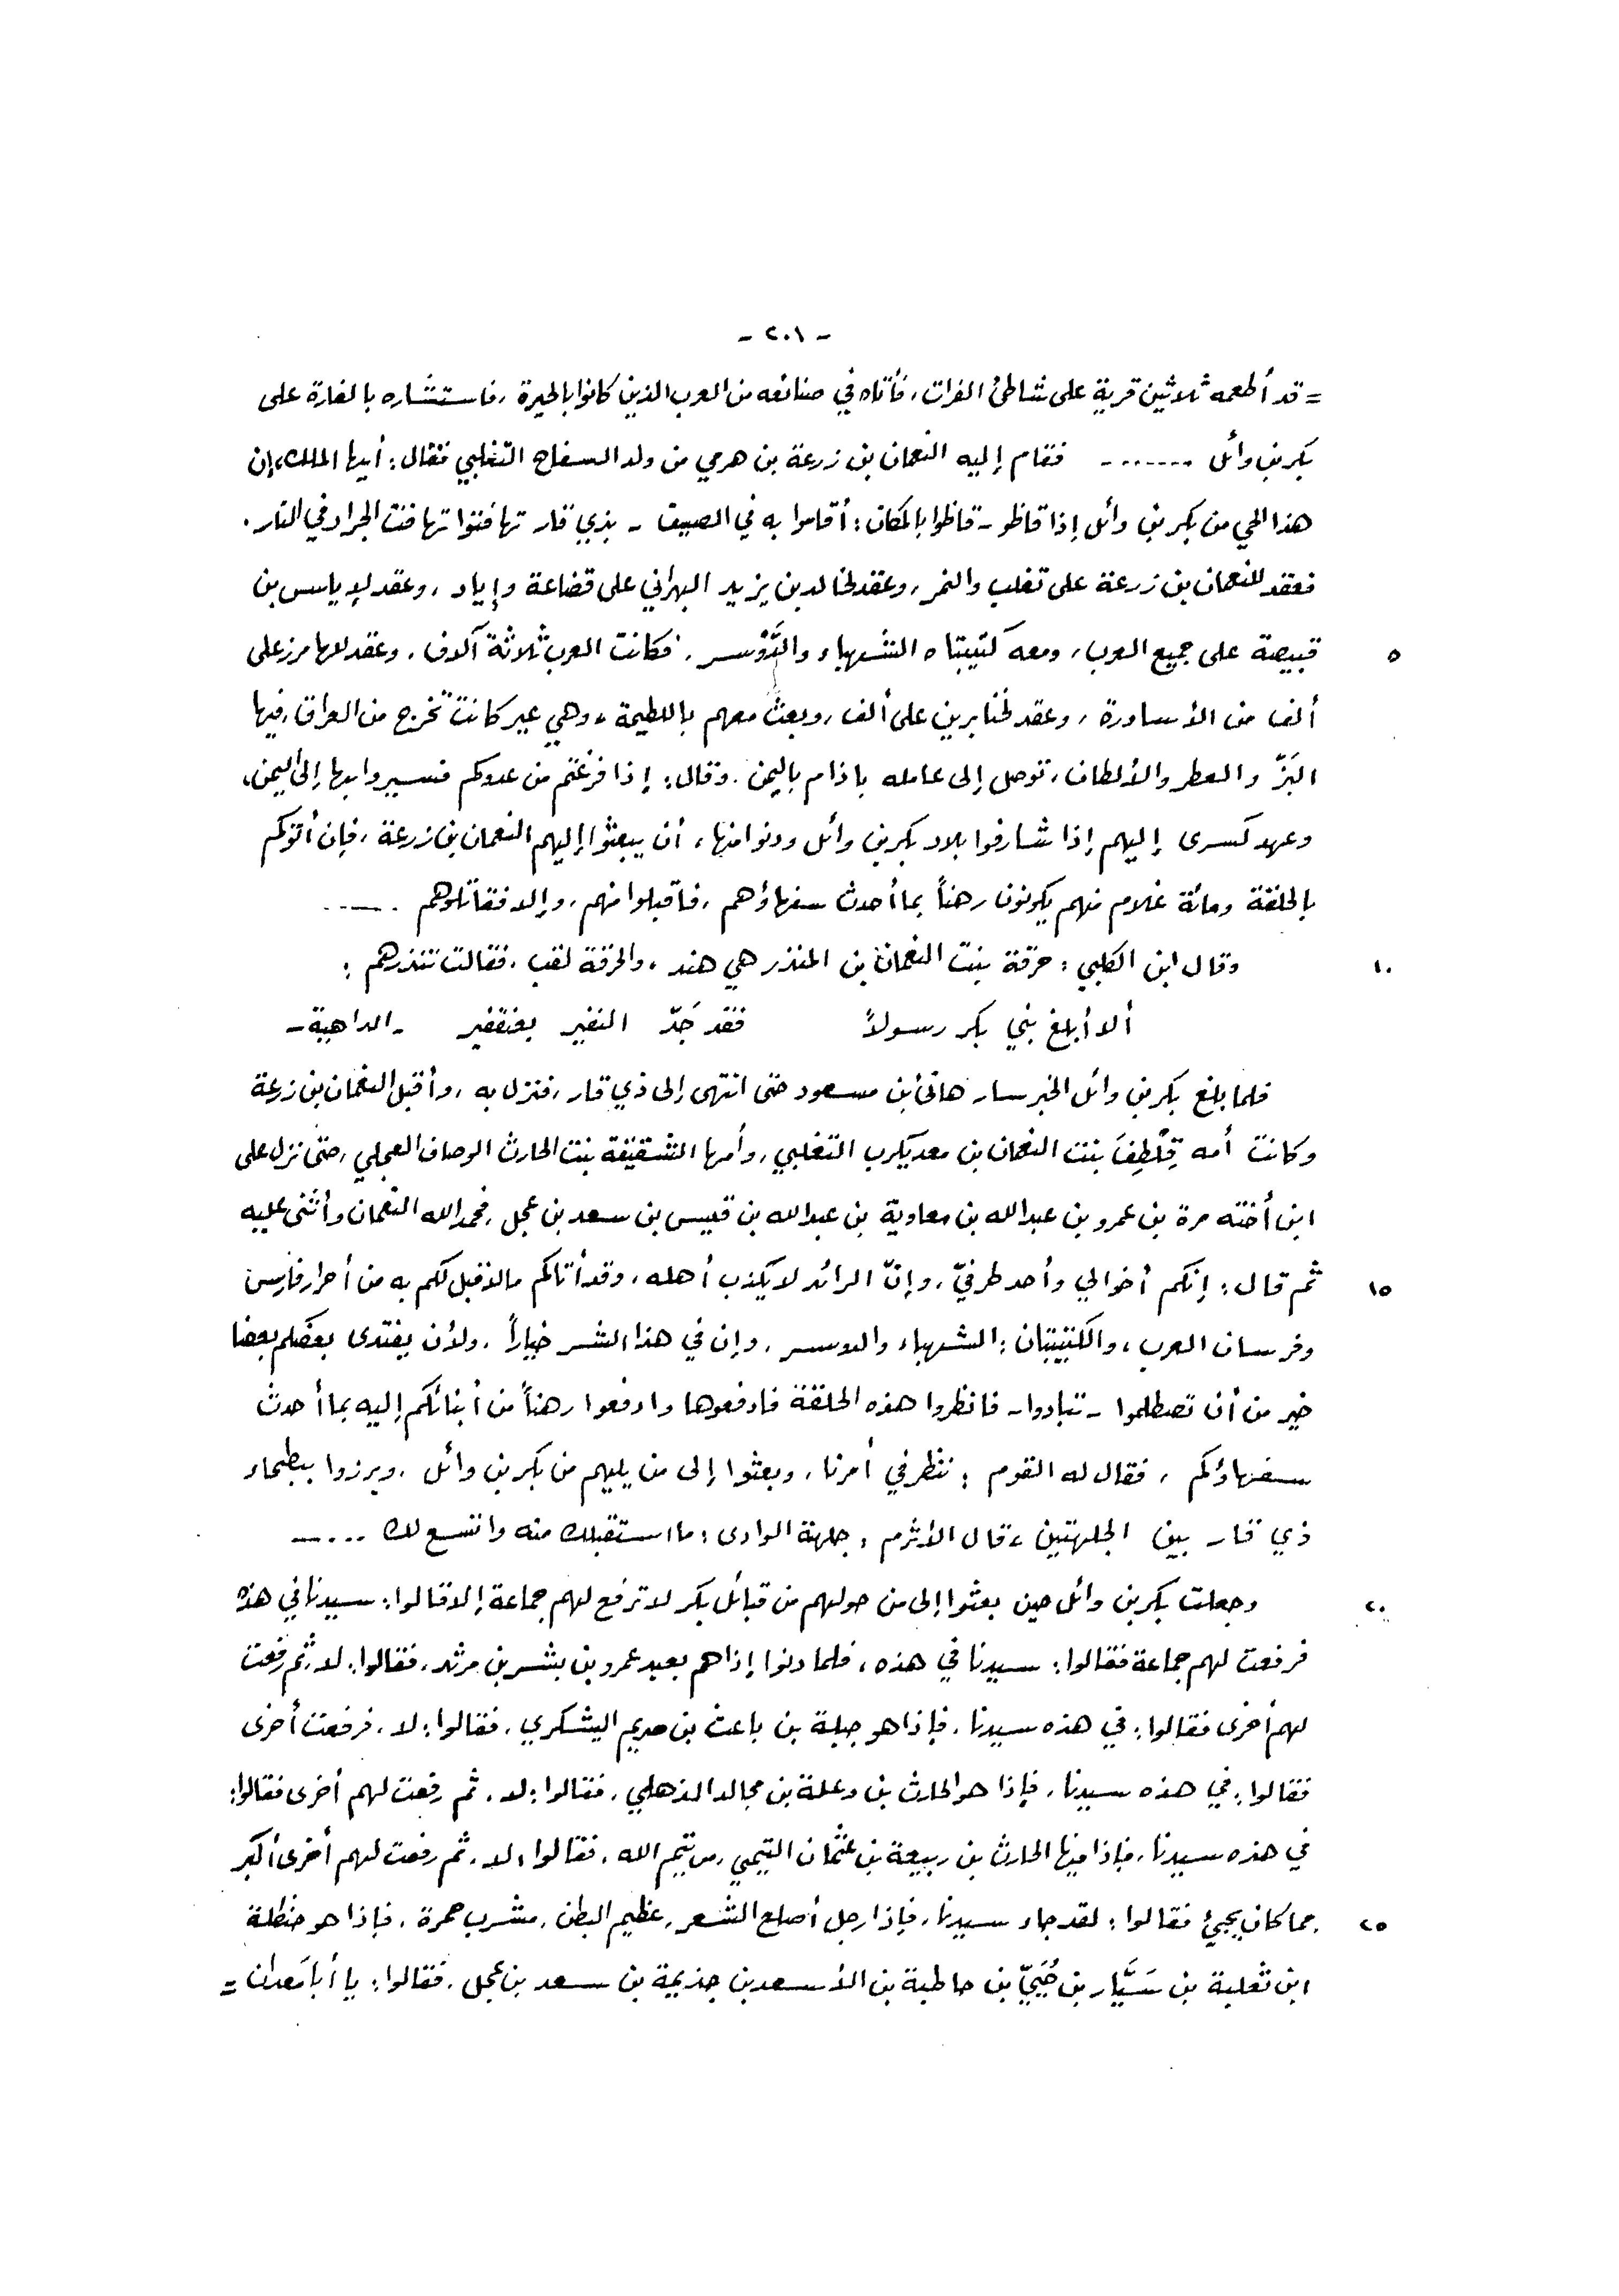 - ٢٠١ -
= قد أطعمه ثلاثين قرية على شاطئ الفرات، فأتاه في صنائعه من العرب الذين كانوا بالحيرة، فاستشاره بالغارة على
بكر بن وائل ....... فقام إليه النعمان بن زرعة بن هرمي من ولد السفاح التغلبي فقال: أيها الملك، إن
هذا الحي من بكر بن وائل إذا قاظو - قاظوا بالمكان: أقاموا به في الصيف - بذي قار تهافتوا تهافت الجراد في النار.
فعقد للنعمان بن زرعة على تغلب والنمر، وعقد لخالد بن يزيد البهراني على قضاعة وإياد، وعقد لإياس بن
٥ قبيصة على جميع العرب، ومعه كتيبتاه الشهباء والدَّوْسر، فكانت العرب ثلاثة آلاف، وعقد للهامرز على
ألف من الأساورة، وعقد لخنابرين على ألف، وبعث معهم باللطيمة، وهي عير كانت تخرج من العراق، فيها
البَزّ والعطر والألطاف، توصل إلى عامله باذام باليمن. وقال: إذا فرغتم من عدوكم فسيروا بها إلى اليمن،
وعهد كسرى إليهم إذا شارفوا بلاد بكر بن وائل ودنوا منها، أن يبعثوا إليهم النعمان بن زرعة، فإن أتوكم
بالحلقة ومائة غلام منهم يكونون رهناً بما أحدث سفهاؤهم، فاقبلوا منهم، وإلا فقاتلوهم .....
١٠ وقال ابن الكلبي: حرقة بنت النعمان بن المنذر هي هند، والحرقة لقب، فقالت تنذرهم:
ألا أبلغ بني بكر رسولاً فقد جَدّ النفير بعنقفير - الداهية -
فلما بلغ بكر بن وائل الخبر سار هانئ بن مسعود حتى انتهى إلى ذي قار، فنزل به، وأقبل النعمان بن زرعة
وكانت أمه قِلْطِفَ بنت النعمان بن معد يكرب التغلبي، وأمها الشقيقة بنت الحارث الوصاف العجلي، حتى نزل على
ابن أخته مرة بن عمرو بن عبد الله بن معاوية بن عبد الله بن قيس بن سعد بن عجل، فحمد الله النعمان وأثنى عليه
١٥ ثم قال: إنكم أخوالي وأحد طرفيّ، وإنّ الرائد لا يكذب أهله، وقد أتاكم ما لا قبل لكم به من أحرار فارس
وفرسان العرب، والكتيبتان: الشهباء والدوسر، وإن في هذا الشر خياراً، ولأن يفتدى بعضكم بعضا
خير من أن تصطلموا - تبادوا - فانظروا هذه الحلقة فادفعوها وادفعوا رهناً من أبنائكم إليه بما أحدث
سفهاؤكم، فقال له القوم: ننظر في أمرنا، وبعثوا إلى من يليهم من بكر بن وائل، وبرزوا ببطحاء
ذي قار بين الجلهتين، قال الأثرم: جلهة الوادى: ما استقبلك منه واتسع لك .....
٢٠ وجعلت بكر بن وائل حين بعثوا إلى من حولهم من قبائل بكر لا ترفع لهم جماعة إلا قالوا: سيدنا في هذه
فرفعت لهم جماعة فقالوا: سيدنا في هذه، فلما دنوا إذا هم بعبد عمرو بن بشر بن مرثد، فقالوا: لا، ثم رفعت
لهم أخرى فقالوا: في هذه سيدنا، فإذا هو جبلة بن باعث بن صريم اليشكري، فقالوا: لا، فرفعت أخرى
فقالوا: في هذه سيدنا، فإذا هو الحارث بن وعلة بن مجالد الذهلي، فقالوا: لا، ثم رفعت لهم أخرى فقالوا:
في هذه سيدنا، فإذا فيها الحارث بن ربيعة بن عثمان التيمي، من تيم الله، فقالوا: لا، ثم رفعت لهم أخرى أكبر
٢٥ مما كان يجيئ فقالوا: لقد جاء سيدنا، فإذا رجل أصلع الشعر، عظيم البطن، مشرب حمرة، فإذا هو حنظلة
ابن ثعلبة بن سَيَّار بن حُيَيّ بن حاطبة بن الأسعد بن جذيمة بن سعد بن عجل، فقالوا: يا أبا مَعدان =